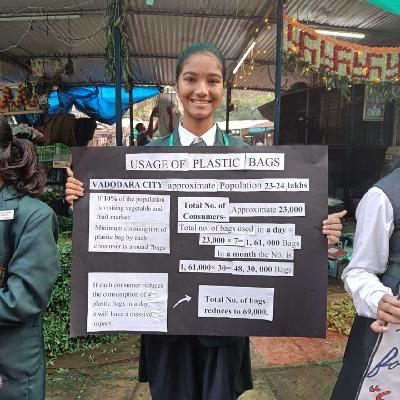 USAGE OF PLASTIC BAGS
VADODARA CITY approximate Population 23-24 lakhs
If 10% of the population
is visiting vegetable and
fruit market:
Minimum consumption of
plastic bag by each
consumer is around 7bags
Total No. of
Consumers- Approximate 23,000
Total no. of bags used in a day =
23,000 × 7= 1, 61, 000 Bags
In a month the No. is
1, 61,000× 30= 48, 30, 000 Bags
If each consumer reduces
the consumption of 4
plastic bags in a day,
it will have a massive
impact
Total No. of bags
reduces to 69,000.